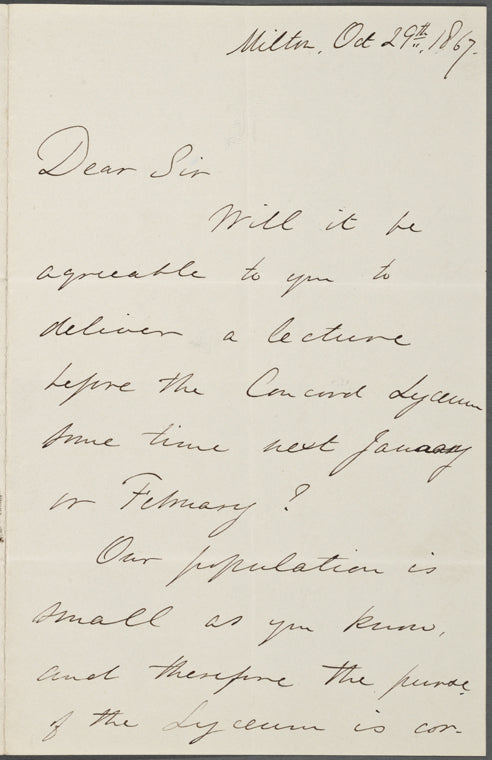 Milton, Oct 29th, 1867.
Dear Sir
Will it be
agreeable to you to
deliver a lecture
before the Concord Lyceum
some time next January
or February?
Our population is
small as you know,
and therefore the purse
of the Lyceum is cor-